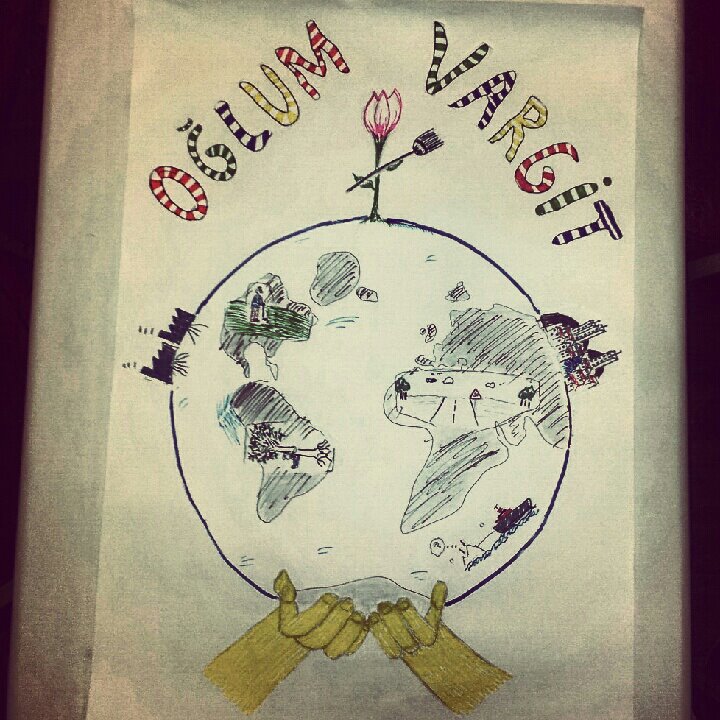 OĞLUM VARGİT